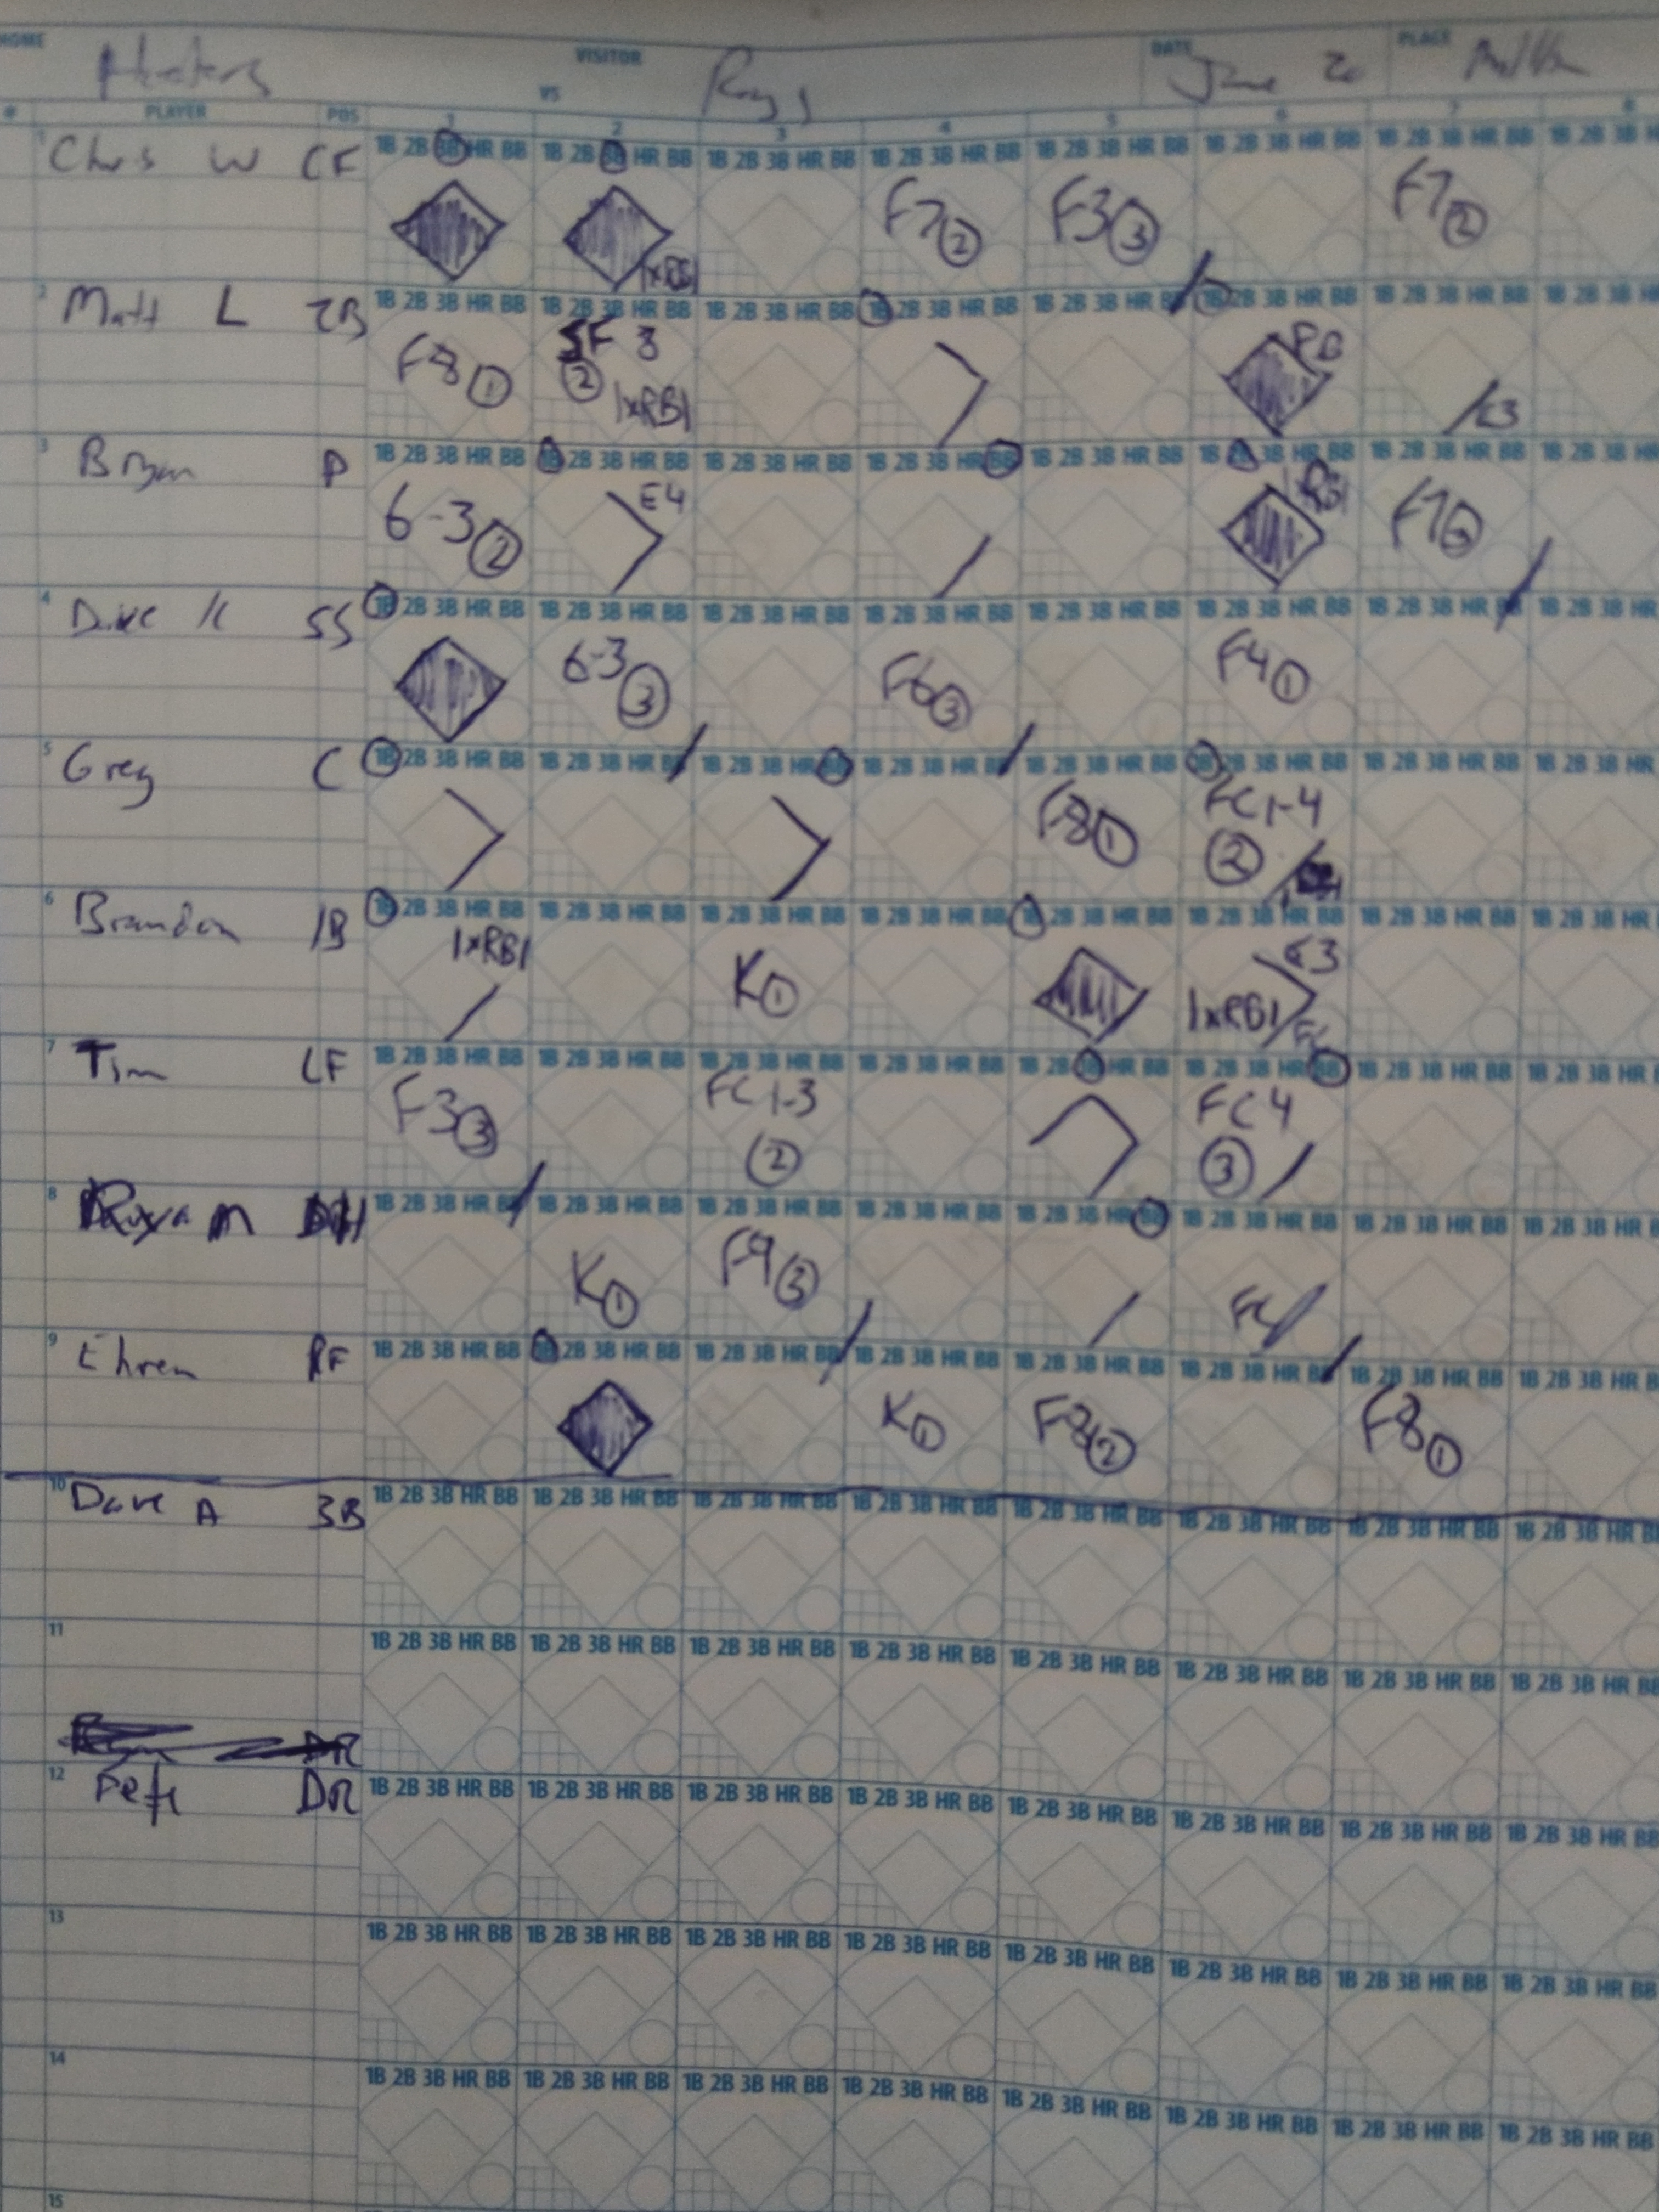 HOME VISITOR DATE PLACE
VS Rays June 20
# PLAYER POS 1 2 3 4 5 6 7 8
1 Chris W CF 1B 2B 3B HR BB 1B 2B 3B HR BB 1B 2B 3B HR BB 1B 2B 3B HR BB 1B 2B 3B HR BB 1B 2B 3B HR BB 1B 2B 3B HR BB 1B 2B 3B HR
F7 2 F3 3 F7 2
1xRBI
2 Matt L 2B 1B 2B 3B HR BB 1B 2B 3B HR BB 1B 2B 3B HR BB 1B 2B 3B HR BB 1B 2B 3B HR BB 1B 2B 3B HR BB 1B 2B 3B HR BB 1B 2B 3B HR
F8 1 SF 8 2 1xRBI PB E3
3 Bryan P 1B 2B 3B HR BB 1B 2B 3B HR BB 1B 2B 3B HR BB 1B 2B 3B HR BB 1B 2B 3B HR BB 1B 2B 3B HR BB 1B 2B 3B HR BB 1B 2B 3B HR
6-3 2 E4 1xRBI F7
4 Dave K SS 1B 2B 3B HR BB 1B 2B 3B HR BB 1B 2B 3B HR BB 1B 2B 3B HR BB 1B 2B 3B HR BB 1B 2B 3B HR BB 1B 2B 3B HR BB 1B 2B 3B HR
6-3 3 F6 3 F4 1
5 Greg C 1B 2B 3B HR BB 1B 2B 3B HR BB 1B 2B 3B HR BB 1B 2B 3B HR BB 1B 2B 3B HR BB 1B 2B 3B HR BB 1B 2B 3B HR BB 1B 2B 3B HR
F8 1 FC 1-4 2
6 Brandon 1B 1B 2B 3B HR BB 1B 2B 3B HR BB 1B 2B 3B HR BB 1B 2B 3B HR BB 1B 2B 3B HR BB 1B 2B 3B HR BB 1B 2B 3B HR BB 1B 2B 3B HR
1xRBI K 1 E3 1xRBI FC
7 Tim LF 1B 2B 3B HR BB 1B 2B 3B HR BB 1B 2B 3B HR BB 1B 2B 3B HR BB 1B 2B 3B HR BB 1B 2B 3B HR BB 1B 2B 3B HR BB 1B 2B 3B HR
F3 3 FC 1-3 2 FC 4 3
8 Ryan M DH 1B 2B 3B HR BB 1B 2B 3B HR BB 1B 2B 3B HR BB 1B 2B 3B HR BB 1B 2B 3B HR BB 1B 2B 3B HR BB 1B 2B 3B HR BB 1B 2B 3B HR BB
K 1 F9 3 FC
9 Ehren RF 1B 2B 3B HR BB 1B 2B 3B HR BB 1B 2B 3B HR BB 1B 2B 3B HR BB 1B 2B 3B HR BB 1B 2B 3B HR BB 1B 2B 3B HR BB 1B 2B 3B HR BB
K 1 F8 2 F8 1
10 Dave A 3B 1B 2B 3B HR BB 1B 2B 3B HR BB 1B 2B 3B HR BB 1B 2B 3B HR BB 1B 2B 3B HR BB 1B 2B 3B HR BB 1B 2B 3B HR BB 1B 2B 3B HR BB
11 1B 2B 3B HR BB 1B 2B 3B HR BB 1B 2B 3B HR BB 1B 2B 3B HR BB 1B 2B 3B HR BB 1B 2B 3B HR BB 1B 2B 3B HR BB 1B 2B 3B HR BB
DR
12 Pete DR 1B 2B 3B HR BB 1B 2B 3B HR BB 1B 2B 3B HR BB 1B 2B 3B HR BB 1B 2B 3B HR BB 1B 2B 3B HR BB 1B 2B 3B HR BB 1B 2B 3B HR BB
13 1B 2B 3B HR BB 1B 2B 3B HR BB 1B 2B 3B HR BB 1B 2B 3B HR BB 1B 2B 3B HR BB 1B 2B 3B HR BB 1B 2B 3B HR BB 1B 2B 3B HR BB
14 1B 2B 3B HR BB 1B 2B 3B HR BB 1B 2B 3B HR BB 1B 2B 3B HR BB 1B 2B 3B HR BB 1B 2B 3B HR BB 1B 2B 3B HR BB 1B 2B 3B HR BB
15